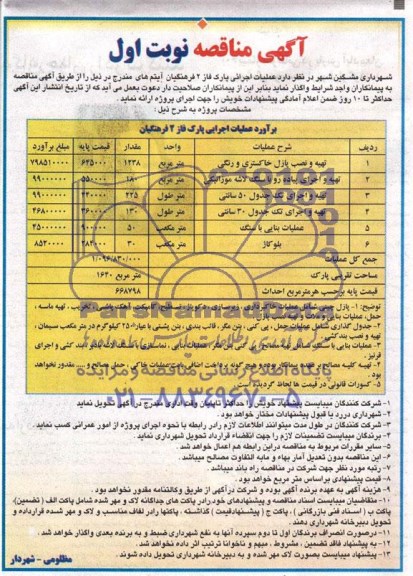 آگهی مناقصه نوبت اول
شهرداری مشگین شهر در نظر دارد عملیات اجرائی پارک فاز ۲ فرهنگیان آیتم های مندرج در ذیل را از طریق آگهی مناقصه
به پیمانکاران واجد شرایط واگذار نماید بنابر این از پیمانکاران صلاحیت دار دعوت بعمل می آید که از تاریخ انتشار این آگهی
حداکثر تا ۱۰ روز ضمن اعلام آمادگی پیشنهادات خویش را جهت اجرای پروژه ارائه نماید.
مشخصات پروژه به شرح ذیل:
برآورد عملیات اجرایی پارک فاز ۲ فرهنگیان
ردیف شرح عملیات واحد مقدار قیمت پایه مبلغ برآورد
۱ تهیه و نصب پازل خاکستری و رنگی متر مربع ۱۲۳۸ ۶۴۵۰۰۰ ۷۹۸۵۱۰۰۰۰
۲ تهیه و اجرای پیاده رو با سنگ لاشه موزائیکی متر مربع ۱۸۰ ۵۵۰۰۰۰ ۹۹۰۰۰۰۰۰
۳ تهیه و اجرای تک جدول ۵۰ سانتی متر طول ۲۲۵ ۴۴۰۰۰۰ ۹۹۰۰۰۰۰۰
۴ تهیه و اجرای تک جدول ۳۰ سانتی متر طول ۱۳۰ ۳۶۰۰۰۰ ۴۶۸۰۰۰۰۰
۵ عملیات بنایی با سنگ متر مکعب ۵۰ ۹۰۰۰۰۰ ۴۵۰۰۰۰۰۰
۶ بلوکاژ متر مکعب ۳۰ ۲۸۴۰۰۰ ۸۵۲۰۰۰۰
جمع کل عملیات ۱/۰۹۶/۸۳۰/۰۰۰
مساحت تقریبی پارک متر مربع ۱۶۴۰
قیمت پایه برحسب هرمترمربع احداث ۶۶۸۷۹۸
حمل، عملیات بنایی و ملات و نهایت نصب پازل
۲- جدول گذاری شامل عملیات حمل، پی کنی، بتن مگر، قالب بندی، بتن پشتی با عیار ۲۵۰ کیلوگرم در متر مکعب سیمان،
تهیه و نصب
قرنیز.
۵- کسورات قانونی در قیمت ها لحاظ گردیده است
۱- شرکت کنندگان میبایست پیشنهاد خویش را حداکثر تا پایان وقت اداری مندرج در آگهی تحویل نماید
۲- شهرداری در رد یا قبول پیشنهادات مختار خواهد بود.
۳- شرکت کنندگان در طول مدت میتوانند اطلاعات لازم را در رابطه با نحوه اجرای پروژه از امور عمرانی کسب نماید.
۴- برندگان میبایست تضمینات لازم را جهت انعقاد قرارداد تحویل نماید
۵- سایر مقررات مربوط به مناقصه در این رابطه هم اعمال خواهد شد.
۶- این مناقصه بدون تعدیل آمار بهاء و مابه التفاوت مصالح میباشد.
۷- رتبه مورد نظر جهت شرکت در مناقصه راه باند میباشد.
۸- قیمت پیشنهادی براساس متر مربع خواهد بود.
۹- هزینه آگهی به عهده برنده آگهی بوده و شرکت در آگهی از طریق وکالتنامه مقدور نخواهد بود.
۱۰- متقاضیان میبایست اسناد مناقصه و پیشنهادهای خود را در پاکت های جداگانه لاک و مهر شده شامل پاکت الف (تضمین)،
پاکت ب (اسناد فنی بازرگانی)، پاکت ج (پیشنهادقیمت) گذاشته، پاکتها را در لفاف مناسب و لاک و مهر شده قرارداده و
تحویل دبیرخانه شهرداری دهند.
۱۱- درصورت انصراف برندگان اول تا دوم سپرده آنها به نفع شهرداری ضبط و به برنده بعدی واگذار خواهد شد.
۱۲- به پیشنهاد فاقد تضمین، مشروط، مبهم و ناخوانا ترتیب اثر داده نخواهد شد.
۱۳- پیشنهاد میبایست بصورت لاک مهر شده و به دبیرخانه شهرداری تحویل داده شوند.
مظلومی - شهردار
ParsNamadData
۰۲۱-۸۸۳۴۹۶۷۰-۵